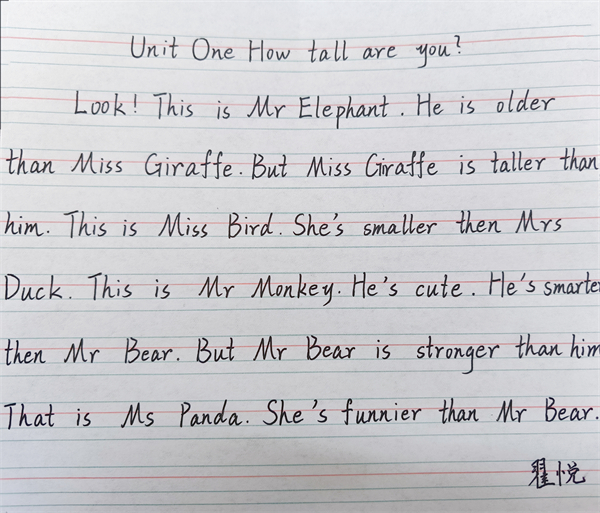 Unit One How tall are you?
Look! This is Mr Elephant. He is older
than Miss Giraffe. But Miss Giraffe is taller than
him. This is Miss Bird. She's smaller then Mrs
Duck. This is Mr Monkey. He's cute. He's smarter
then Mr Bear. But Mr Bear is stronger than him
That is Ms Panda. She's funnier than Mr Bear.
翟悦